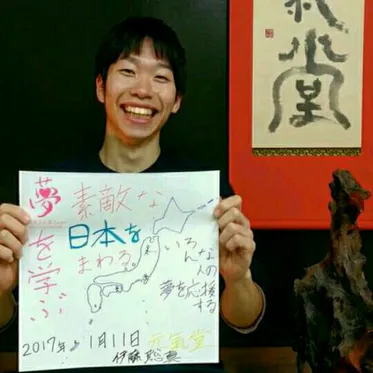 夢を学ぶ
素敵な
日本を
まわる
いろんな
人の
夢を応援
する
2017年 1月11日 元氣堂
伊藤
氣堂